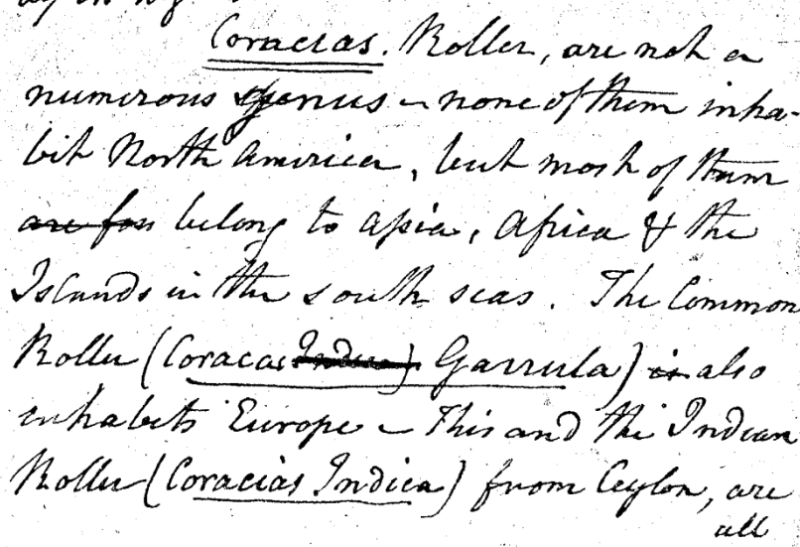 Coracias. Roller, are not a
numerous genus – none of them inha-
bit North America, but most of them
are foun belong to Asia, Africa & the
Islands in the south seas. The Common
Roller (Coracas Indica) Garrula) is also
inhabits Europe – This and the Indian
Roller (Coracias Indica) from Ceylon, are
all